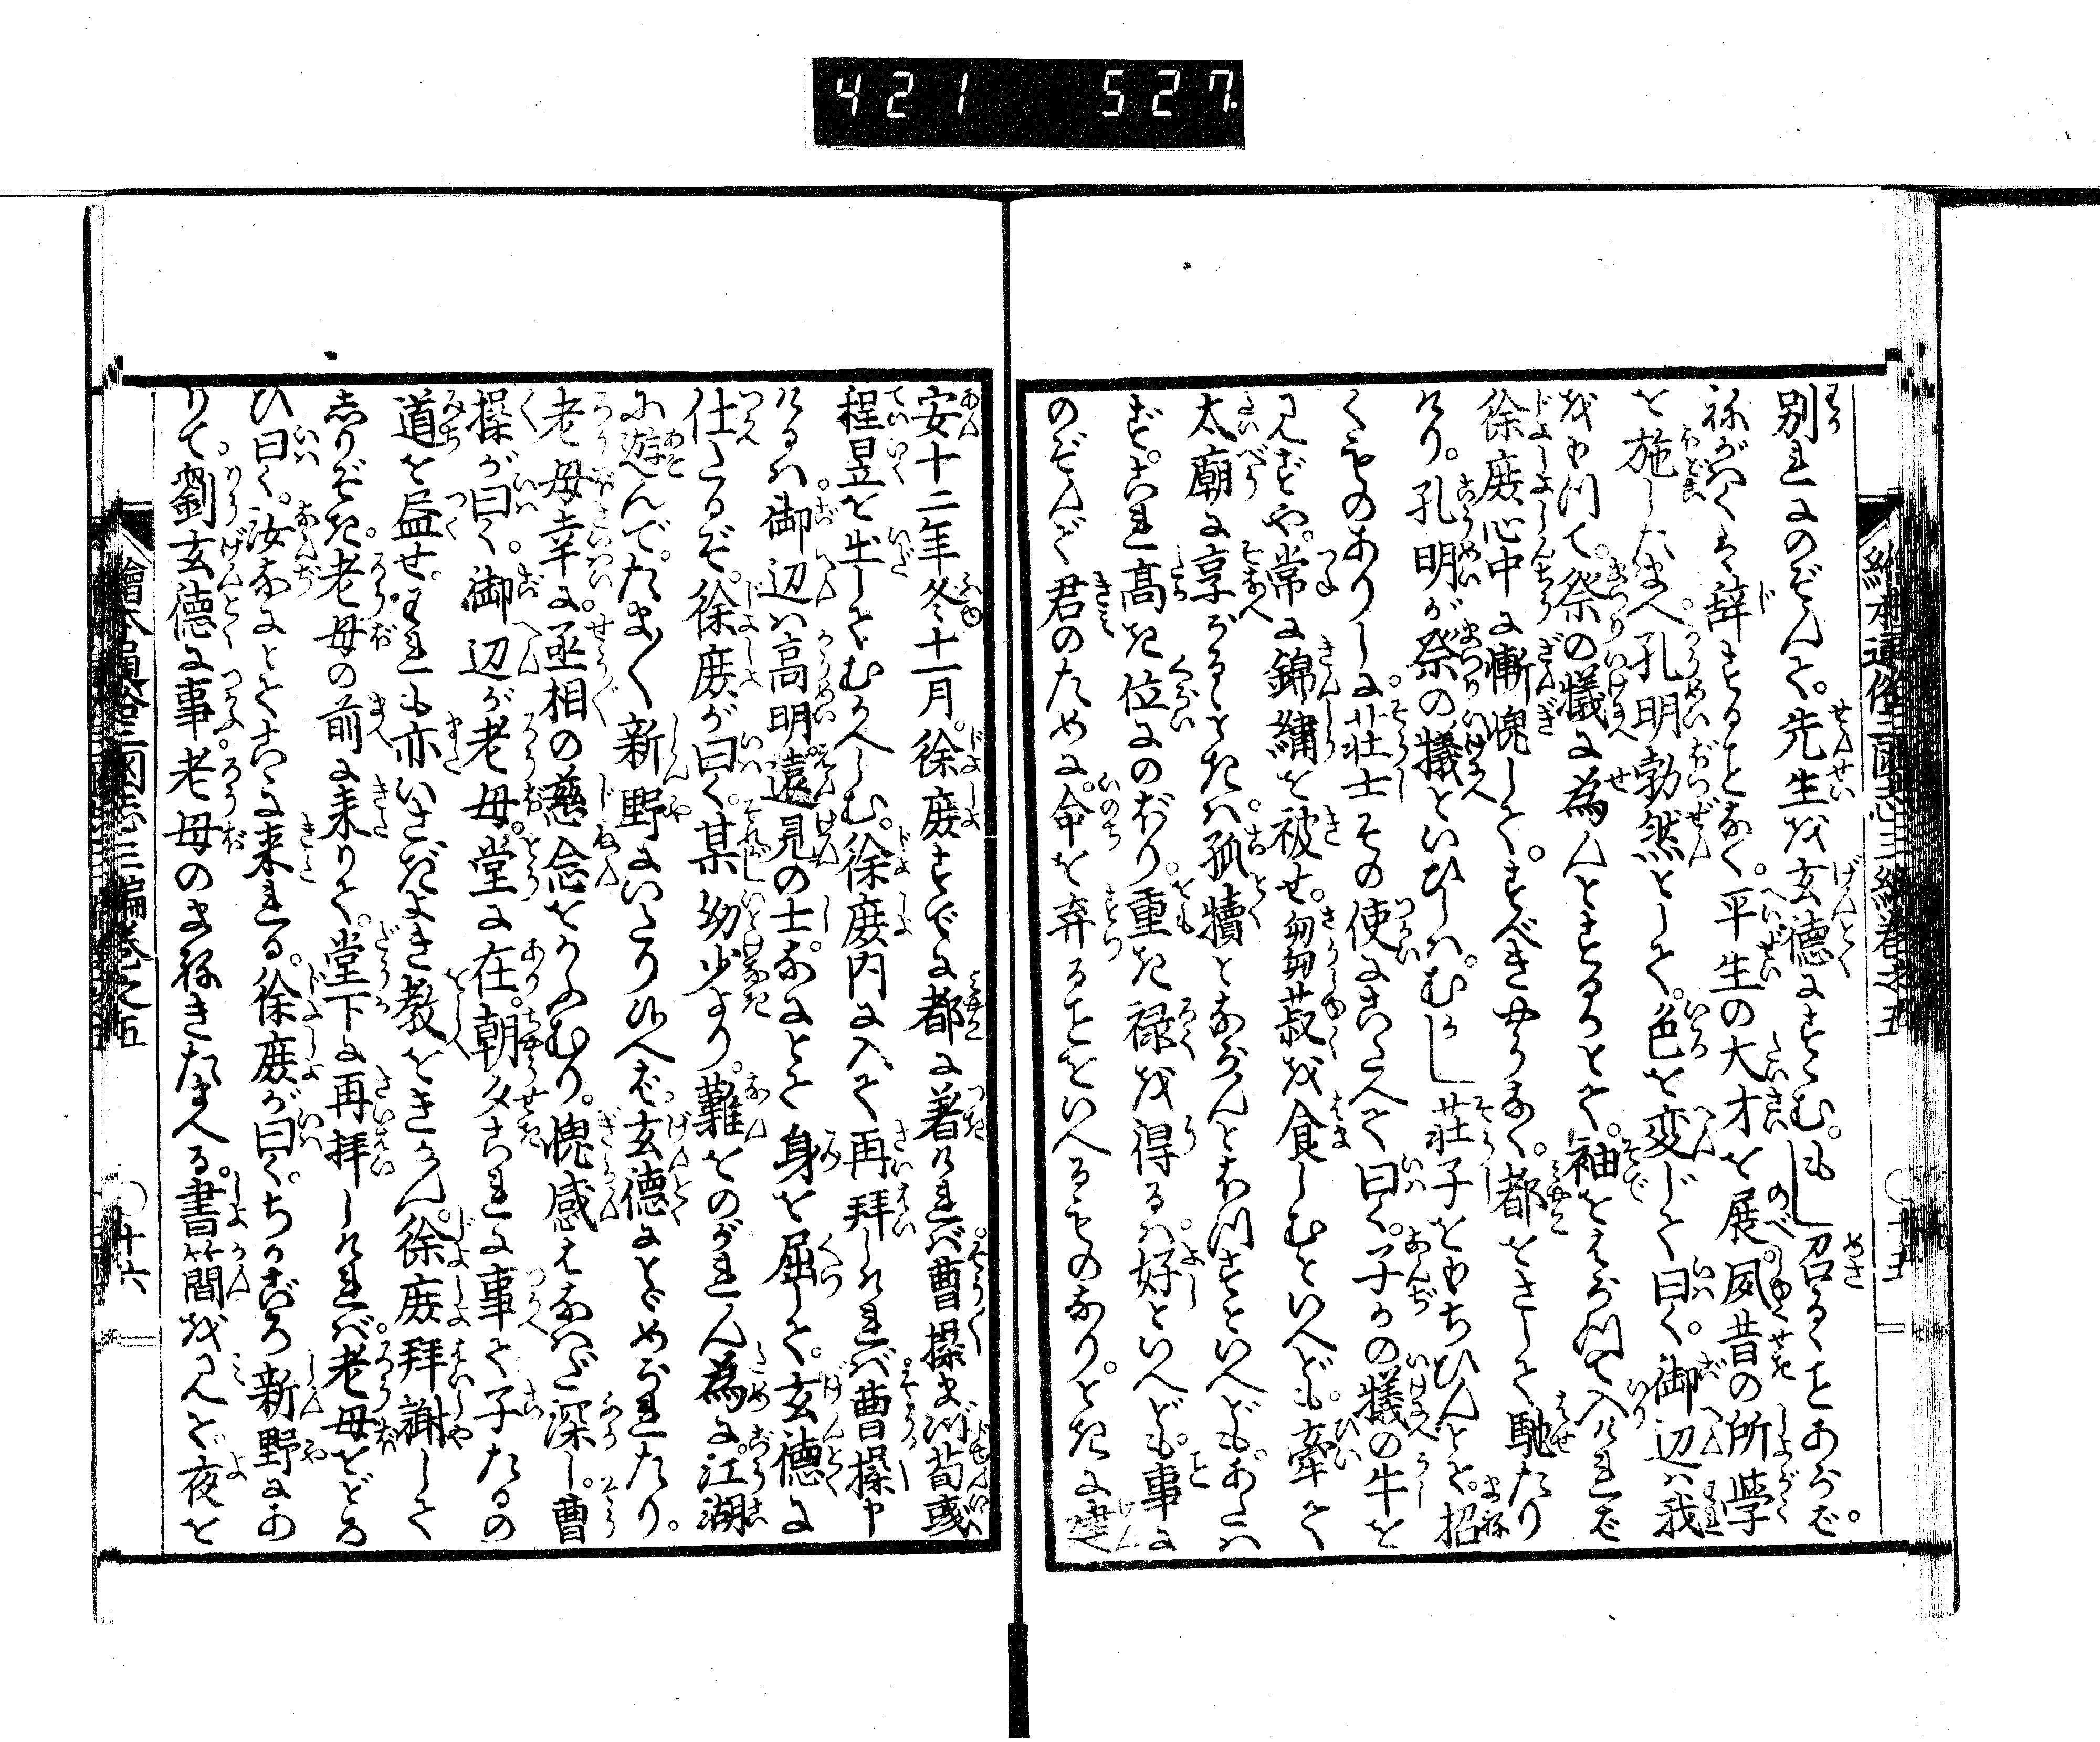 421 527
繪本通俗三國志三編巻之五 〇十五
別れにのぞんで。先生を玄徳にすゝむ。もし召るゝことあらば。
祢がハくは辞することなく。平生の大才を展。夙昔の所学
を施したまへ。孔明勃然として。色を変じて曰く。御辺ハ我
をもつて。祭の犠に為んとするかとて。袖をはらつて入ければ
徐庶心中に慚愧して。すべきやうなく。都をさして馳たり
けり。孔明が祭の犠といひしハ。むかし荘子をもちひんとて。招
くものありしに。荘士その使にこたへて曰く。子かの犠の牛を
見ずや。常に錦繍を被せ。芻菽を食しむといへども。牽て
太廟に享がるゝときハ。孤犢とならんとおもへどもいへども。あたハ
ず。これ高き位にのぼり。重き禄を得るハ。好といへども。事に
のぞんで君のために。命を弃ることをいへるものなり。ときに建
安十二年冬十一月。徐庶すでに都に着ければ。曹操まづ荀彧
程昱を出してむかへしむ。徐庶内に入て再拝しければ曹操申
けるハ。御辺ハ高明遠見の士。なにとて身を屈して。玄徳に
仕たるぞ。徐庶が曰く。某幼少より。難をのがれん為に。江湖
に遊んで。たま〱新野にいたり候へば。玄徳にとゞめられたり。
老母幸に。丞相の慈念をかふむり。愧感はなハだ深し。曹
操が曰く。御辺が老母。堂に在。朝夕これに事て子たるの
道を尽せ。われも亦いさぎよき教をきかん。徐庶拝謝して
しりぞき。老母の前に来りて。堂下に再拝しければ。老母をどろ
ひ曰く。汝なにとてこゝに来れる。徐庶が曰く。ちかごろ新野にあ
りて。劉玄徳に事。老母のまねきたまへる。書簡を見て。夜を
繪本通俗三國志三編巻之五 〇十六